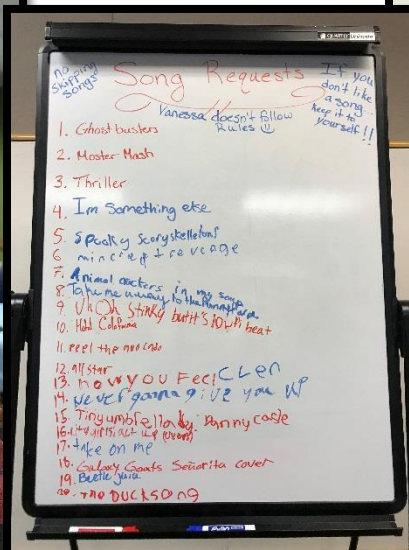 no
skipping
songs
Song Requests
If you
don't like
a song...
keep it to
yourself!!
Vanessa doesn't follow
Rules
1. Ghost busters
2. Moster Mash
3. Thriller
4. Im Something else
5. Spooky scary skeletons
6 mincreaft revenge
7. Animal crackers in my soup
8. Take me away to the
9. Uh Oh Stinky but it's 10 beat
10. Hotel California
11. Peel the avocado
12. all star
13. now you Feel
14. never gonna give you up
15. Tiny umbrella by: Danny
16.
17. take on me
18. Galaxy Goats Señorita cover
19. Beetle juice
20. The DUCKSONG